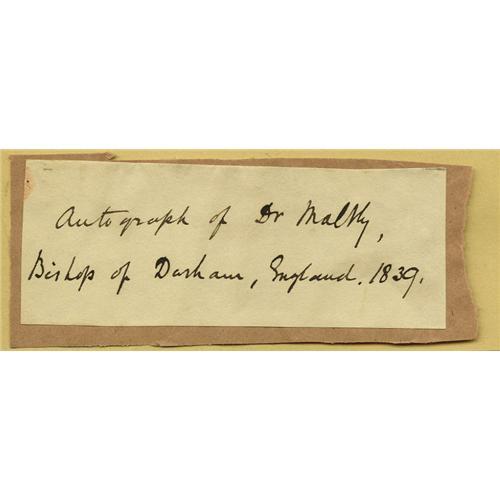 Autograph of Dr Maltby,
Bishop of Durham, England. 1839.